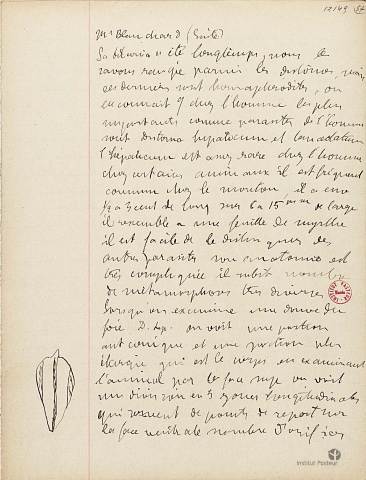 12149 54
Mr Blanchard (Suite)
La bilharzia a été longtemps, nous le
savons rangée parmi les distomes, mais
ces derniers sont hermaphrodites, on
en connait 7 chez l'homme les plus
importants comme parasites de l'homme
sont distoma hepaticum et lanceolatum
l'hépaticum est assez rare chez l'homme
chez certains animaux il est fréquent
commun chez le mouton, il a env
2 à 3 cent de long sur 6 à 15 mm de large
il ressemble a une feuille de myrthe
il est facile de le distinguer des
autres parasites son anatomie est
très compliquée il subit nombre
de métamorphoses très diverses
lorsqu'on examine une douve du
foie D. hep. on voit une portion
ant conique et une portion plus
élargie qui est le corps en examinant
l'animal par la face sup on voit
une division en 3 zones longitudinales
qui servent de points de repère sur
la face ventrale nombre d'orifices
INSTITUT PASTEUR
Institut Pasteur